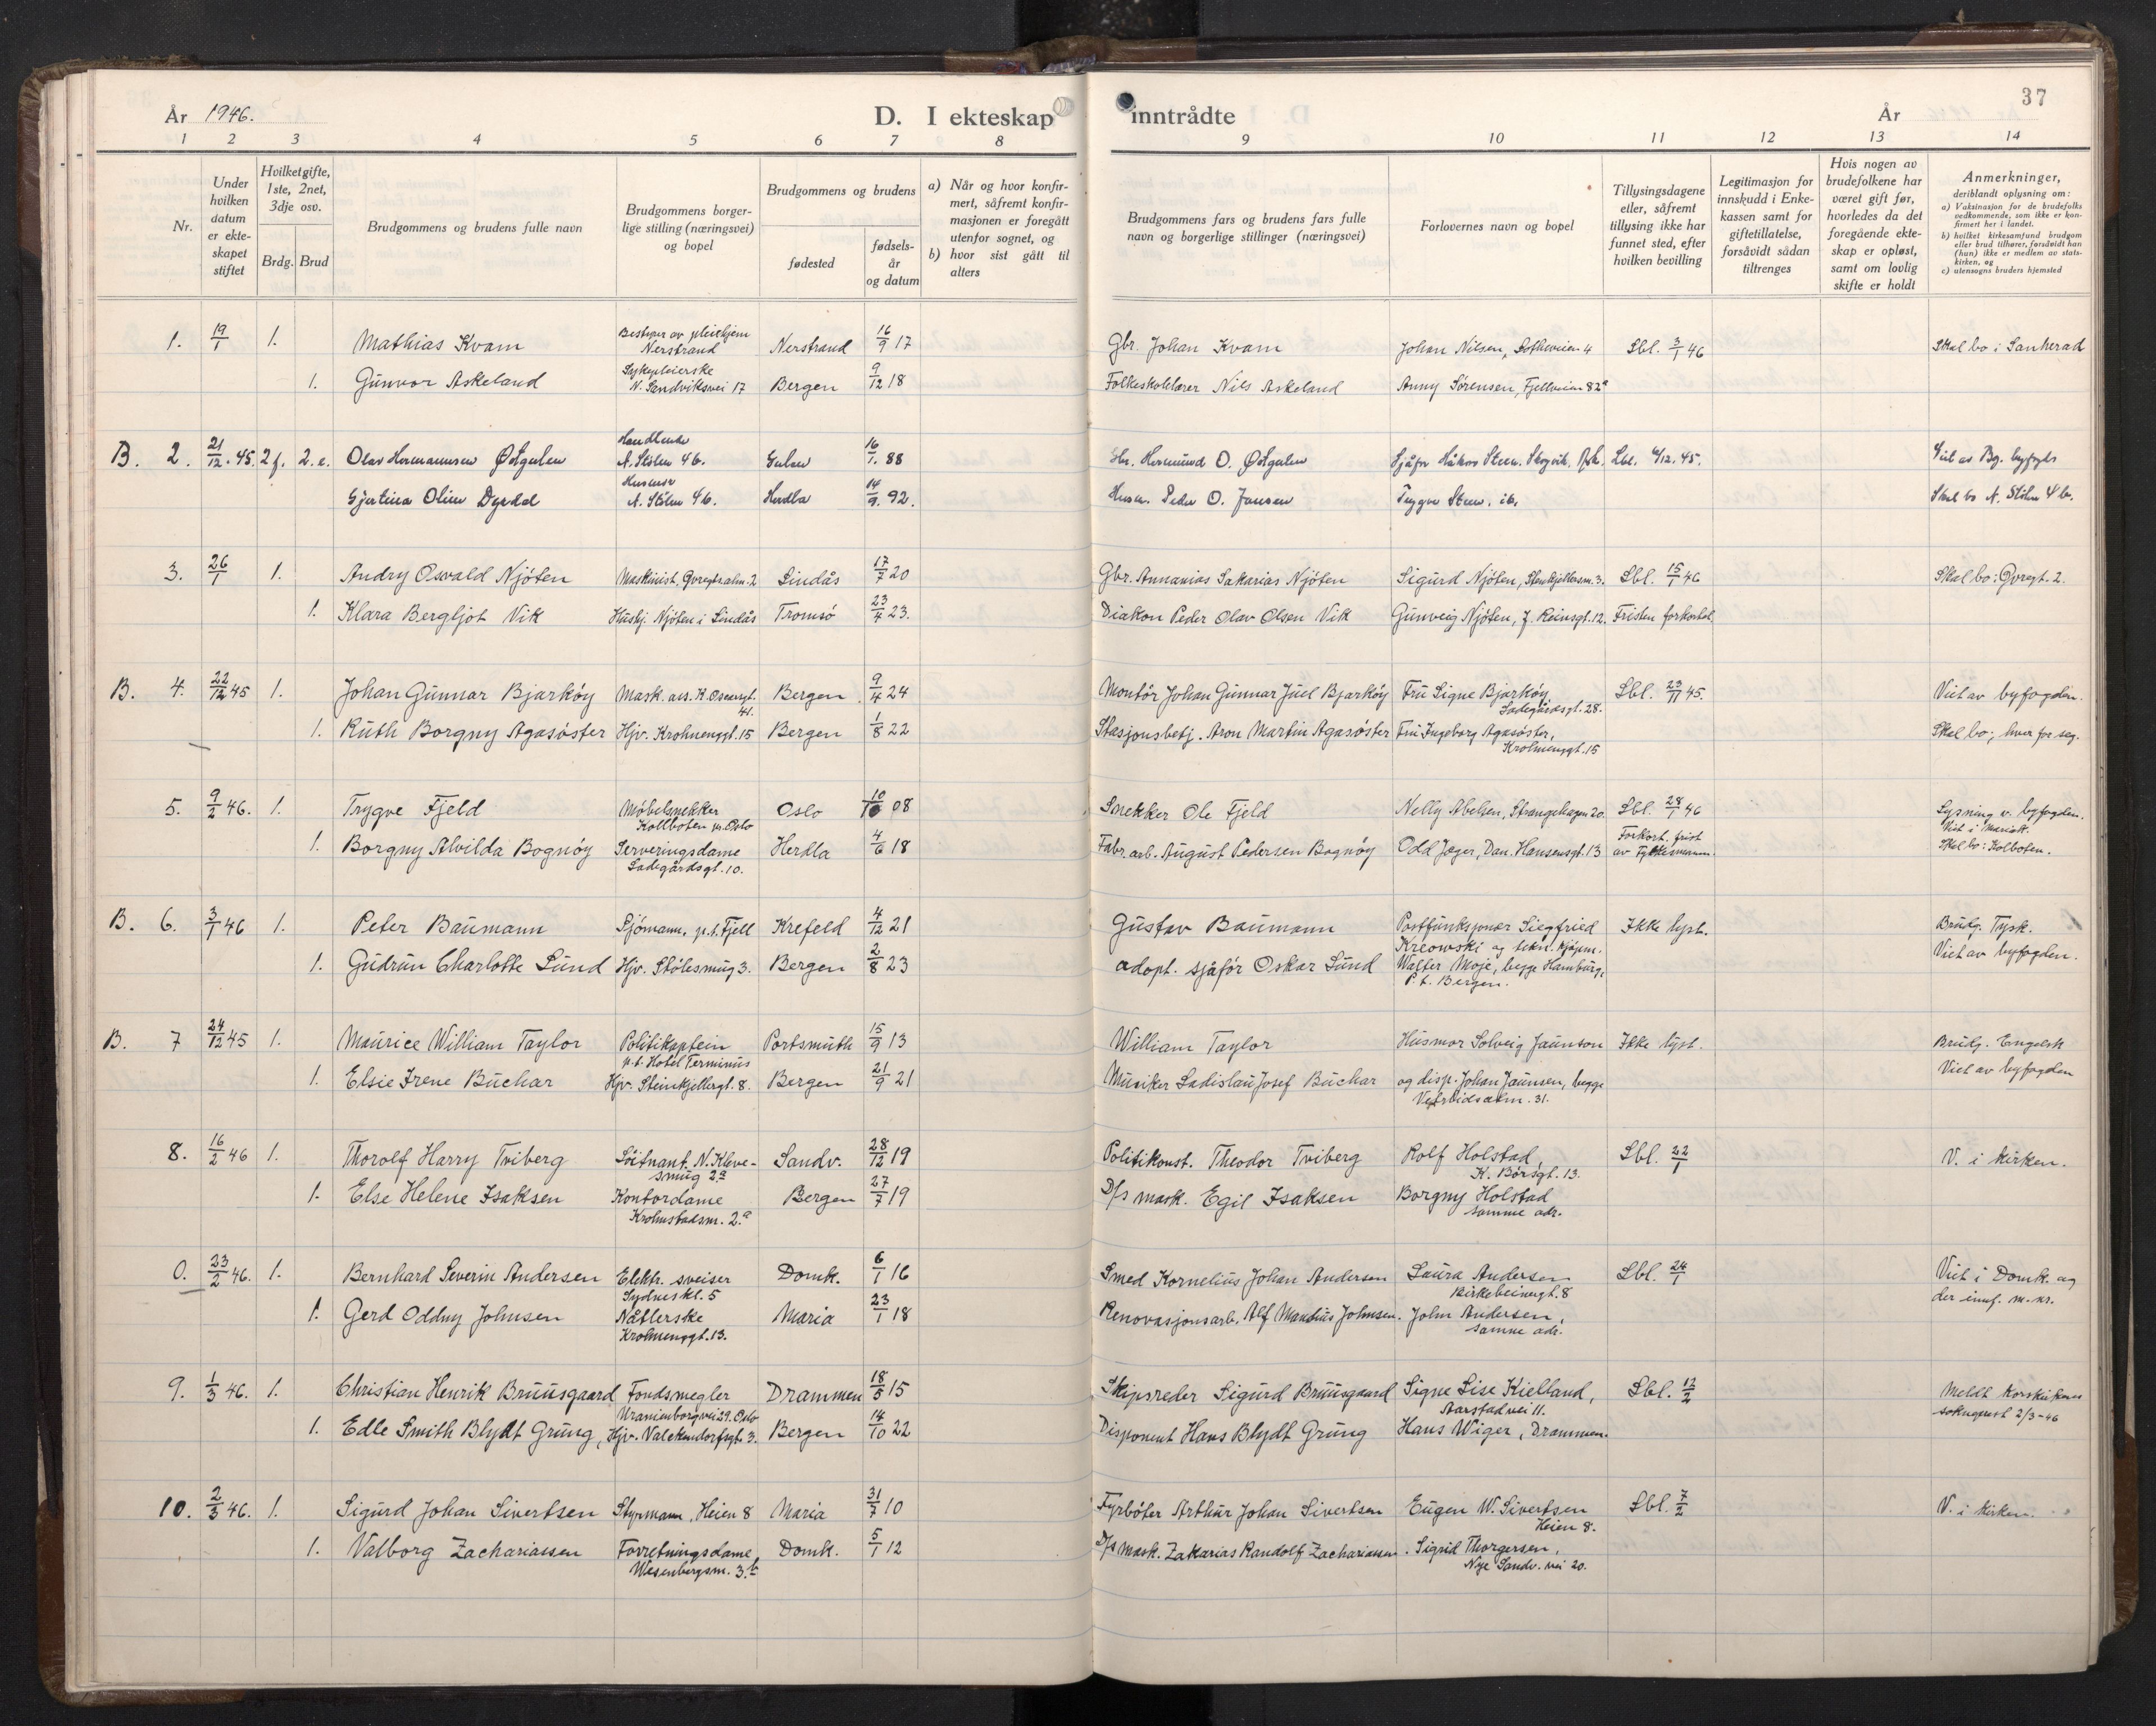 37
År 1946. D. I ekteskap inntrådte År
1 2 3 4 5 6 7 8 9 10 11 12 13 14
Nr.
Under hvilken datum er ekteskapet stiftet
Hvilket gifte, 1ste, 2net, 3dje osv.
Brdg. Brud
Brudgommens og brudens fulle navn
Brudgommens borgerlige stilling (næringsvei) og bopel
Brudgommens og brudens
fødested
fødselsår og datum
a) Når og hvor konfirmert, såfremt konfirmasjonen er foregått utenfor sognet, og
b) hvor sist gått til alters
Brudgommens fars og brudens fars fulle navn og borgerlige stillinger (næringsvei)
Forlovernes navn og bopel
Tillysingsdagene eller, såfremt tillysing ikke har funnet sted, efter hvilken bevilling
Legitimasjon for innskudd i Enkekassen samt for giftetillatelse, forsåvidt sådan tiltrenges
Hvis nogen av brudefolkene har været gift før, hvorledes da det foregående ekteskap er opløst, samt om lovlig skifte er holdt
Anmerkninger,
deriblandt oplysning om:
a) Vaksinasjon for de brudefolks vedkommende, som ikke er konfirmert her i landet.
b) hvilket kirkesamfund brudgom eller brud tilhører, forsåvidt han (hun) ikke er medlem av statskirken, og
c) utensogns bruders hjemsted
1. 19/1 1. Mathias Kvam Bestyrer av pleiehjem Nerstrand Nerstrand 16/9 17 Gbr. Johan Kvam Johan Nilsen, Sotheveien 4 Lbl. 3/1 46 Skal bo i Sanherad
1. Gunvor Askeland Sykepleierske N. Sandviksvei 17 Bergen 9/12 18 Folkeskolelærer Nils Askeland Anny Sørensen, Fjellveien 82a
B. 2. 21/12.45. 2 f. 2. e. Olav Hermannsen Østgulen N. Stølen 46. Gulen 16/1. 88 Gbr. Hermund O. Østgulen Sjåfør Håkon Steen. Lbl. 4/12.45. Viet av Bg. byfogd
Gjertina Oline Dyrdal Husmor N. Stølen 46. Herdla 14/9. 92. Husm. Peder O. Jansen Trygve Steen. ib. Skal bo N. Stølen
3. 26/1 1. Andry Osvald Njøten Maskinist, Øvregtsalm. 2 Lindås 17/7 20 Gbr. Annanias Sakarias Njøten Sigurd Njøten, Stenkjellersm. 3. Lbl. 15/1 46 Skal bo: Øvregt. 2.
1. Klara Bergljot Vik Hushj. Njøten i Lindås Tromsø 23/4 23. Diakon Peder Olav Olsen Vik Gunveig Njøten, J. Reinsgt. 12. Fristen forkortet.
B. 4. 22/12 45 1. Johan Gunnar Bjarkøy Mask. ass. K. Oscarsgt. 41. Bergen 9/4 24 Montør Johan Gunnar Juel Bjarkøy Fru Signe Bjarkøy, Ladegårdsgt. 28. Lbl. 23/11 45. Viet av byfogden.
1. Ruth Borgny Agasøster Hjv. Krohnenggt. 15 Bergen 1/8 22 Stasjonsbetj. Aron Martin Agasøster Fru Ingeborg Agasøster, Krohnenggt. 15 Skal bo; hver for seg.
5. 9/2 46. 1. Trygve Fjeld Møbelsnekker Kollboten pr. Oslo Oslo 10/10 08 Snekker Ole Fjeld Nelly Abelsen, Strangehagen 20. Lbl. 28/1 46 Lysning v. byfogden. Viet i Mariak.
1. Borgny Alvilda Bognøy Serveringsdame Ladegårdsgt. 10. Herdla 4/6 18 Fabr. arb. August Pedersen Bognøy Odd Jæger, Dan. Hansensgt. 13 Forkort. frist av Fylkesmann. Skal bo: Kolboten.
B. 6. 3/1 46 1. Peter Baumann Sjømann, p.t. Fjell Krefeld 4/12 21 Gustav Baumann Postfunksjonær Siegfried Kreowski og tekn. Ikke lyst. Brudg. Tysk.
1. Gudrun Charlotte Lund Hjv. Stølesmug 3. Bergen 2/8 23 adopt. sjåfør Oskar Lund Walter Moje, begge Hamburg, P.t. Bergen. Viet av byfogden.
B. 7 24/12 45 1. Maurice William Taylor Politikaptein p.t. Hotel Terminus Portsmuth 15/9 13 William Taylor Husmor Solveig Jaunson Ikke lyst. Brudg. Engelsk
1. Elsie Irene Buchar Hjv. Steinkjellergt. 8. Bergen 21/9 21 Musiker Ladislau Josef Buchar og disp. Johan Jaunsen, begge Vetrlidsalm. 31. Viet av byfogden
8. 16/2 46 1. Thorolf Harry Tviberg Løitnant, N. Klevesmug 2a Sandv. 28/12 19 Politikonst. Theodor Tviberg Rolf Holstad, K. Børsgt. 13. Lbl. 22/1 V. i kirken.
1. Else Helene Isaksen Kontordame Krohnstadsm. 2a Bergen 27/7 19 D/s mask. Egil Isaksen Borgny Holstad samme adr.
0. 23/2 46. 1. Bernhard Severin Andersen Elektr. sveiser Sydneskl. 5 Domk. 6/1 16 Smed Kornelius Johan Andersen Laura Andersen Birkebeinergt. 8 Lbl. 24/1 Viet i Domk. og der innf. m. nr.
1. Gerd Oddny Johnsen Nåtlerske Krohnenggt. 13. Maria 23/1 18 Renovasjonsarb. Alf Mandius Johnsen. John Andersen, samme adr.
9. 1/3 46. 1. Christian Henrik Bruusgaard Fondsmegler Uranienborgvei 29. Oslo Drammen 18/5 15 Skipsreder Sigurd Bruusgaard Signe Lise Kielland, Aarstadvei 11. Lbl. 12/2 Meldt Korskirkens sokneprest 2/3-46
1. Edle Smith Blydt Grung, Hjv. Valckendorfsgt. 3. Bergen 14/10 22 Disponent Hans Blydt Grung Hans Wiger, Drammen.
10. 2/3 46. 1. Sigurd Johan Sivertsen Styrmann, Heien 8 Maria 31/7 10 Fyrbøter Arthur Johan Sivertsen Eugen W. Sivertsen Heien 8. Lbl. 7/2 V. i kirken.
1. Valborg Zachariassen Forretningsdame, Wesenbergsm. 3b Domk. 5/1 12 D/s mask. Zakarias Randolf Zachariassen. Sigrid Thorgersen, Nye Sandv. vei 20.